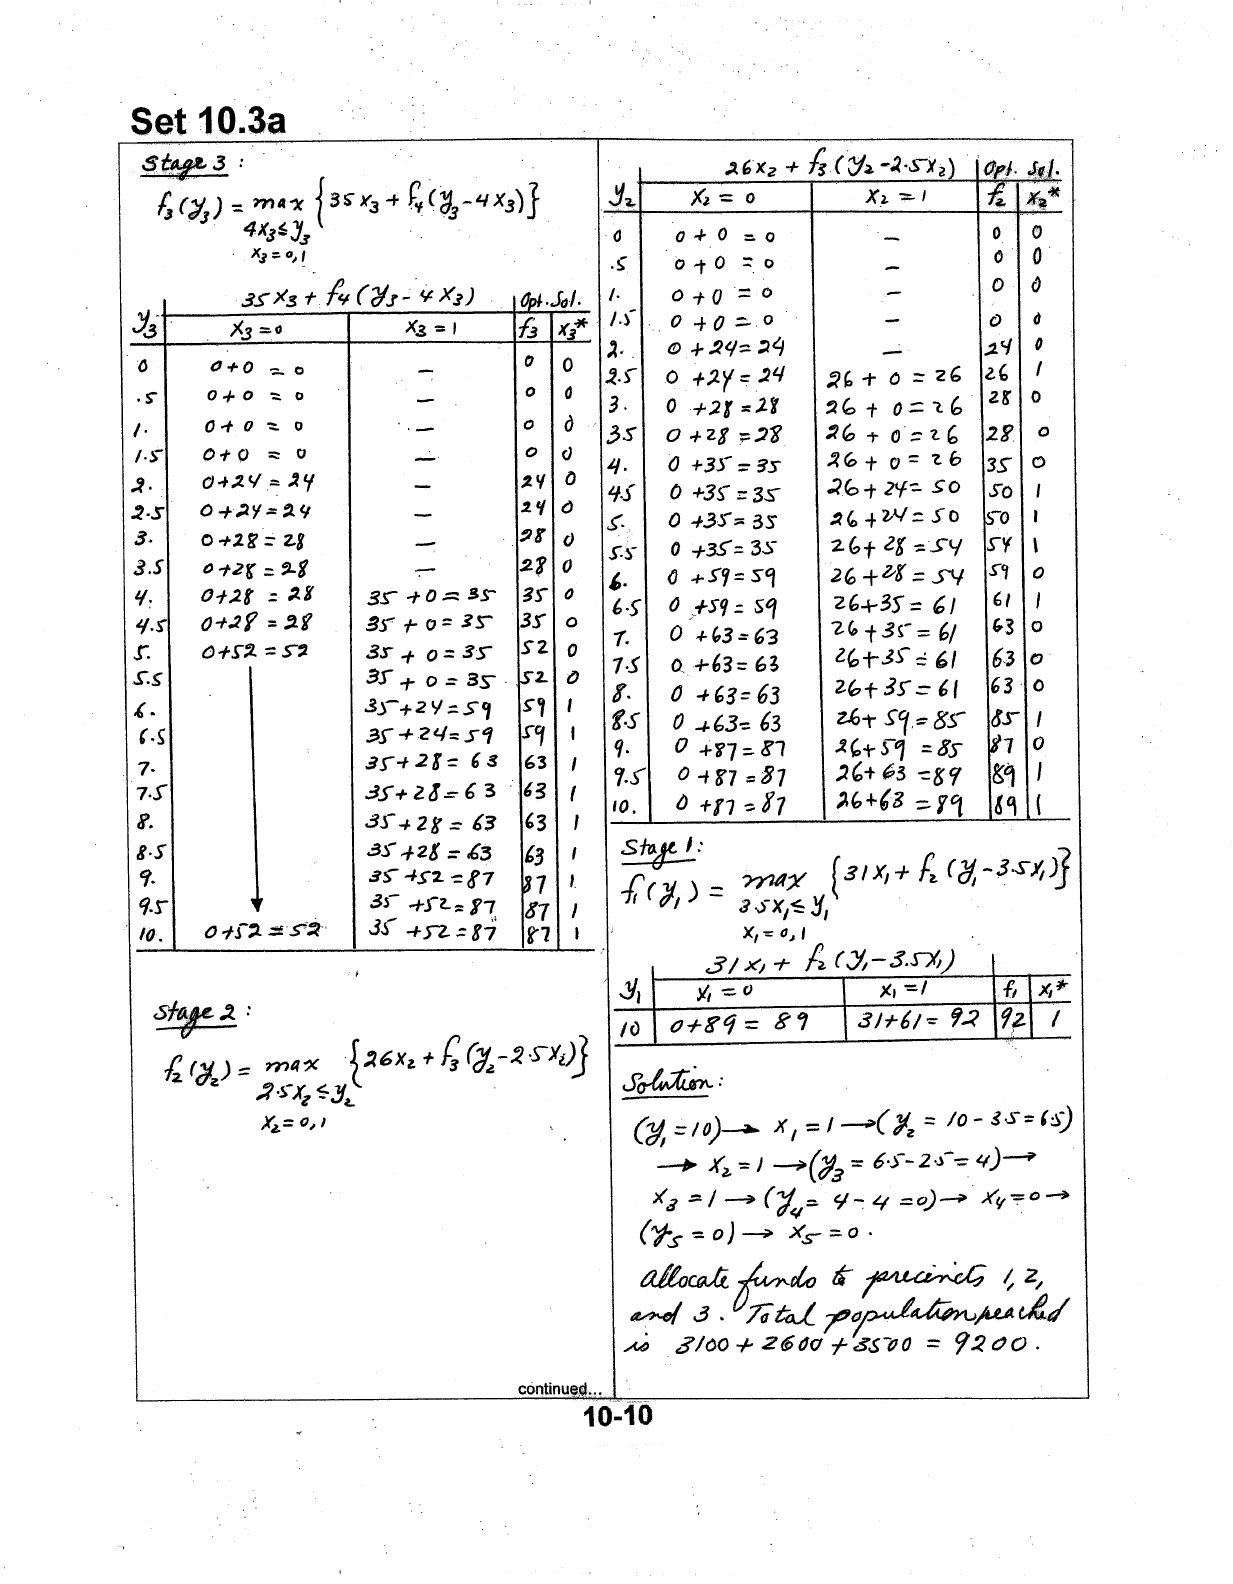 Set 10.3a
Stage 3 :
f₃(y₃) = max {35 x₃ + f₄(y₃-4x₃)}
4x₃≤y₃
x₃=0,1
35x₃ + f₄(y₃-4x₃) Opt. Sol.
y₃ x₃=0 x₃=1 f₃ x₃*
0 0+0 = 0 — 0 0
.5 0+0 = 0 — 0 0
1. 0+0 = 0 — 0 0
1.5 0+0 = 0 — 0 0
2. 0+24 = 24 — 24 0
2.5 0+24=24 — 24 0
3. 0+28= 28 — 28 0
3.5 0+28 = 28 — 28 0
4. 0+28 = 28 35 +0 = 35 35 0
4.5 0+28 = 28 35 + 0= 35 35 0
5. 0+52 = 52 35 + 0 = 35 52 0
5.5 35 + 0 = 35 52 0
6. 35+24=59 59 1
6.5 35+24=59 59 1
7. 35+28= 63 63 1
7.5 35+28= 63 63 1
8. 35+28 = 63 63 1
8.5 35+28 = 63 63 1
9. 35+52 =87 87 1
9.5 35 +52= 87 87 1
10. 0+52 = 52 35 +52 =87 87 1
Stage 2 :
f₂(y₂) = max {26x₂ + f₃(y₂-2.5x₂)}
2.5x₂≤y₂
x₂=0,1
continued...
26x₂ + f₃(y₂-2.5x₂) Opt. Sol.
y₂ x₂ = 0 x₂ = 1 f₂ x₂*
0 0+0 = 0 — 0 0
.5 0+0 = 0 — 0 0
1. 0+0 = 0 — 0 0
1.5 0+0 = 0 — 0 0
2. 0+24=24 — 24 0
2.5 0+24=24 26+0=26 26 1
3. 0+28=28 26+0=26 28 0
3.5 0+28=28 26+0=26 28 0
4. 0+35=35 26+0=26 35 0
4.5 0+35=35 26+24=50 50 1
5. 0+35=35 26+24=50 50 1
5.5 0+35=35 26+28=54 54 1
6. 0+59=59 26+28=54 59 0
6.5 0+59=59 26+35=61 61 1
7. 0+63=63 26+35=61 63 0
7.5 0+63=63 26+35=61 63 0
8. 0+63=63 26+35=61 63 0
8.5 0+63=63 26+59=85 85 1
9. 0+87=87 26+59=85 87 0
9.5 0+87=87 26+63=89 89 1
10. 0+87=87 26+63=89 89 1
Stage 1:
f₁(y₁) = max {31x₁ + f₂(y₁-3.5x₁)}
3.5x₁≤y₁
x₁=0,1
31x₁ + f₂(y₁-3.5x₁)
y₁ x₁ = 0 x₁ = 1 f₁ x₁*
10 0+89 = 89 31+61= 92 92 1
Solution :
(y₁=10)→ x₁=1→(y₂ = 10-3.5=6.5)
→ x₂=1→(y₃= 6.5-2.5=4)→
x₃=1→(y₄= 4-4=0)→ x₄=0→
(y₅=0)→ x₅=0.
allocate funds to precincts 1, 2,
and 3. Total population reached
is 3100+2600+3500 = 9200.
10-10